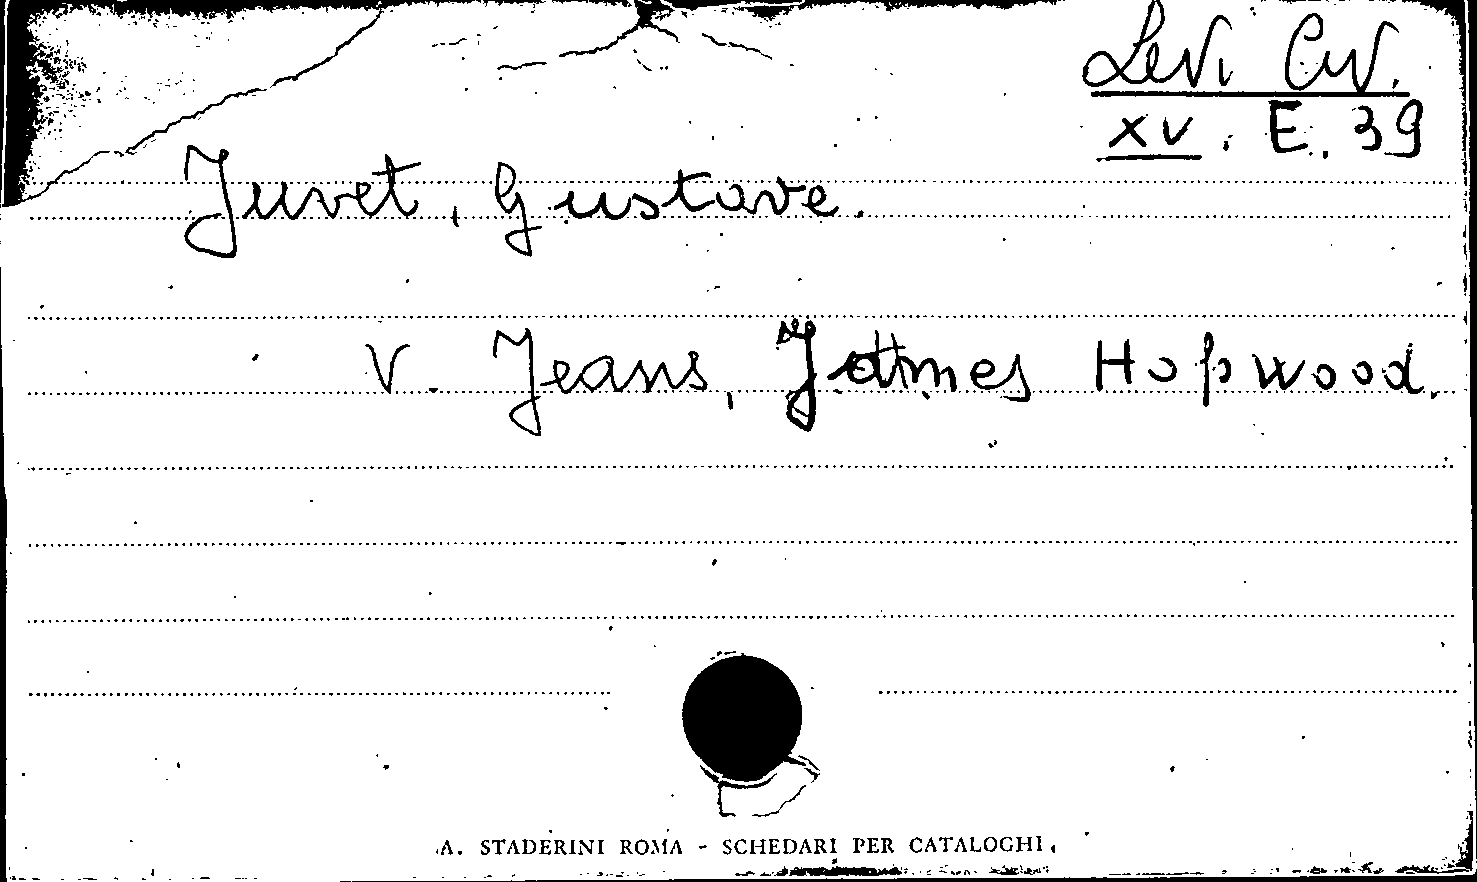 Levi Civ.
XV. E. 39
Juvet, Gustave.
V. Jeans, James Hopwood.
A. STADERINI ROMA - SCHEDARI PER CATALOGHI.